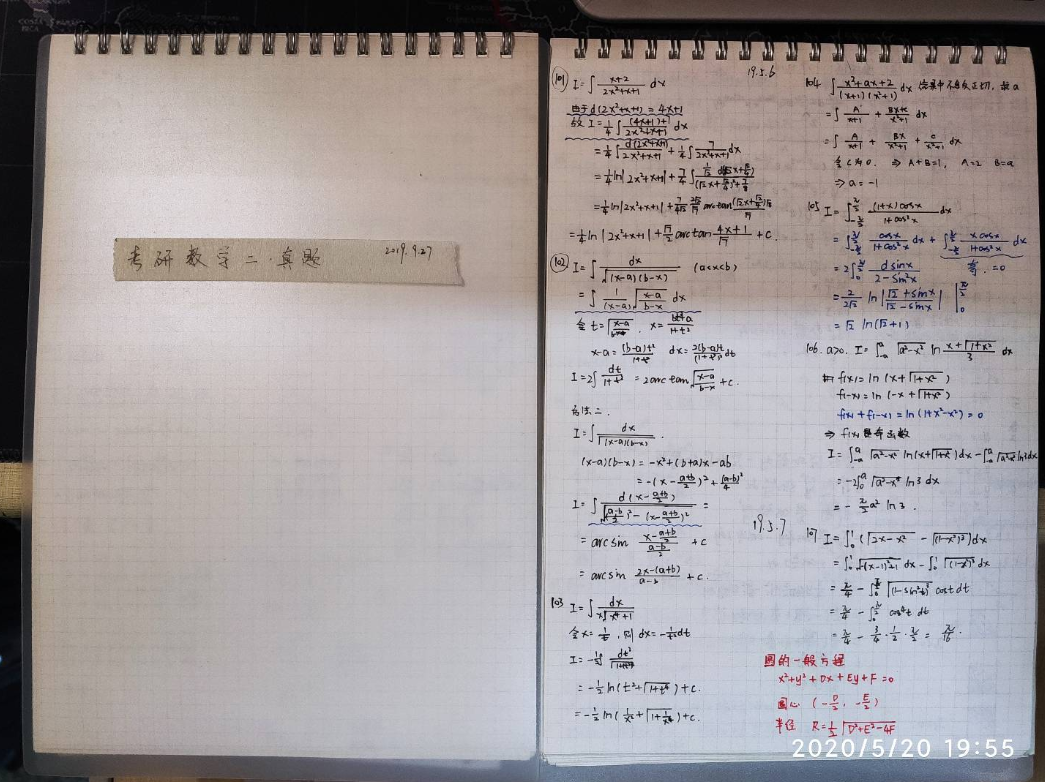 考研数学二·真题 2019.9.27
19.5.6
101 I=∫ (x+2)/(2x²+x+1) dx
由于d(2x²+x+1)=4x+1
故 I=1/4∫ ((4x+1)+7)/(2x²+x+1) dx
=1/4∫ d(2x²+x+1)/(2x²+x+1) + 1/4∫ 7/(2x²+x+1) dx
=1/4 ln|2x²+x+1| + √7/2 arctan (4x+1)/√7 + c.
102 I=∫ dx/√((x-a)(b-x)) (a<x<b)
=∫ 1/(x-a) √((x-a)/(b-x)) dx
令 t=√((x-a)/(b-x)), x=(bt²+a)/(1+t²)
x-a=(b-a)t²/(1+t²) dx=2(b-a)t/(1+t²)² dt
I=2∫ dt/(1+t²) =2arctan√((x-a)/(b-x)) +c.
方法二.
I=∫ dx/√((x-a)(b-x)).
(x-a)(b-x)=-x²+(b+a)x-ab
=-(x-(a+b)/2)²+(a-b)²/4
I=∫ d(x-(a+b)/2)/√(((a-b)/2)²-(x-(a+b)/2)²) =
=arcsin (x-(a+b)/2)/((a-b)/2) +c
=arcsin (2x-(a+b))/(a-b) +c.
103 I=∫ dx/(x√(x⁴+1))
令x=1/t, 则 dx=-1/t²dt
I=-1/2∫ dt²/√(1+t⁴)
=-1/2 ln(t²+√(1+t⁴))+c.
=-1/2 ln(1/x²+√(1+1/x⁴))+c.
104 ∫ (x²+ax+2)/((x+1)(x²+1)) dx 结果中不含反正切, 求a
=∫ A/(x+1) + (Bx+c)/(x²+1) dx
=∫ A/(x+1) + Bx/(x²+1) + c/(x²+1) dx
⇒ A+B=1, A=2 B=a
⇒ a=-1
105 I=∫_{-π/2}^{π/2} (1+x)cosx/(1+cos²x) dx
=∫_{-π/2}^{π/2} cosx/(1+cos²x) dx + ∫_{-π/2}^{π/2} xcosx/(1+cos²x) dx
=2∫_0^{π/2} dsinx/(2-sin²x) 奇.=0
=2/(2√2) ln|(√2+sinx)/(√2-sinx)| |_0^{π/2}
=√2 ln(√2+1)
106. a>0. I=∫_{-a}^{a} √(a²-x²) ln (x+√(1+x²))/3 dx
f(x)=ln(x+√(1+x²))
f(-x)=ln(-x+√(1+x²))
f(x)+f(-x)=ln(1+x²-x²)=0
⇒ f(x)是奇函数
I=∫_{-a}^{a} √(a²-x²) ln(x+√(1+x²))dx-∫_{-a}^{a} √(a²-x²) ln3dx
=-2∫_0^a √(a²-x²) ln3 dx
=-π/2 a² ln3.
19.5.7
107 I=∫_0^1 (√(2x-x²) - √((1-x²)³))dx
=∫_0^1 √(-(x-1)²+1) dx - ∫_0^1 √((1-x²)³) dx
=π/4 - ∫_0^{π/2} √((1-sin²t)³) cost dt
=π/4 - ∫_0^{π/2} cos⁴t dt
=π/4 - 3/4·1/2·π/2 = π/16.
圆的一般方程
x²+y²+Dx+Ey+F=0
圆心 (-D/2, -E/2)
半径 R=1/2 √(D²+E²-4F)
2020/5/20 19:55